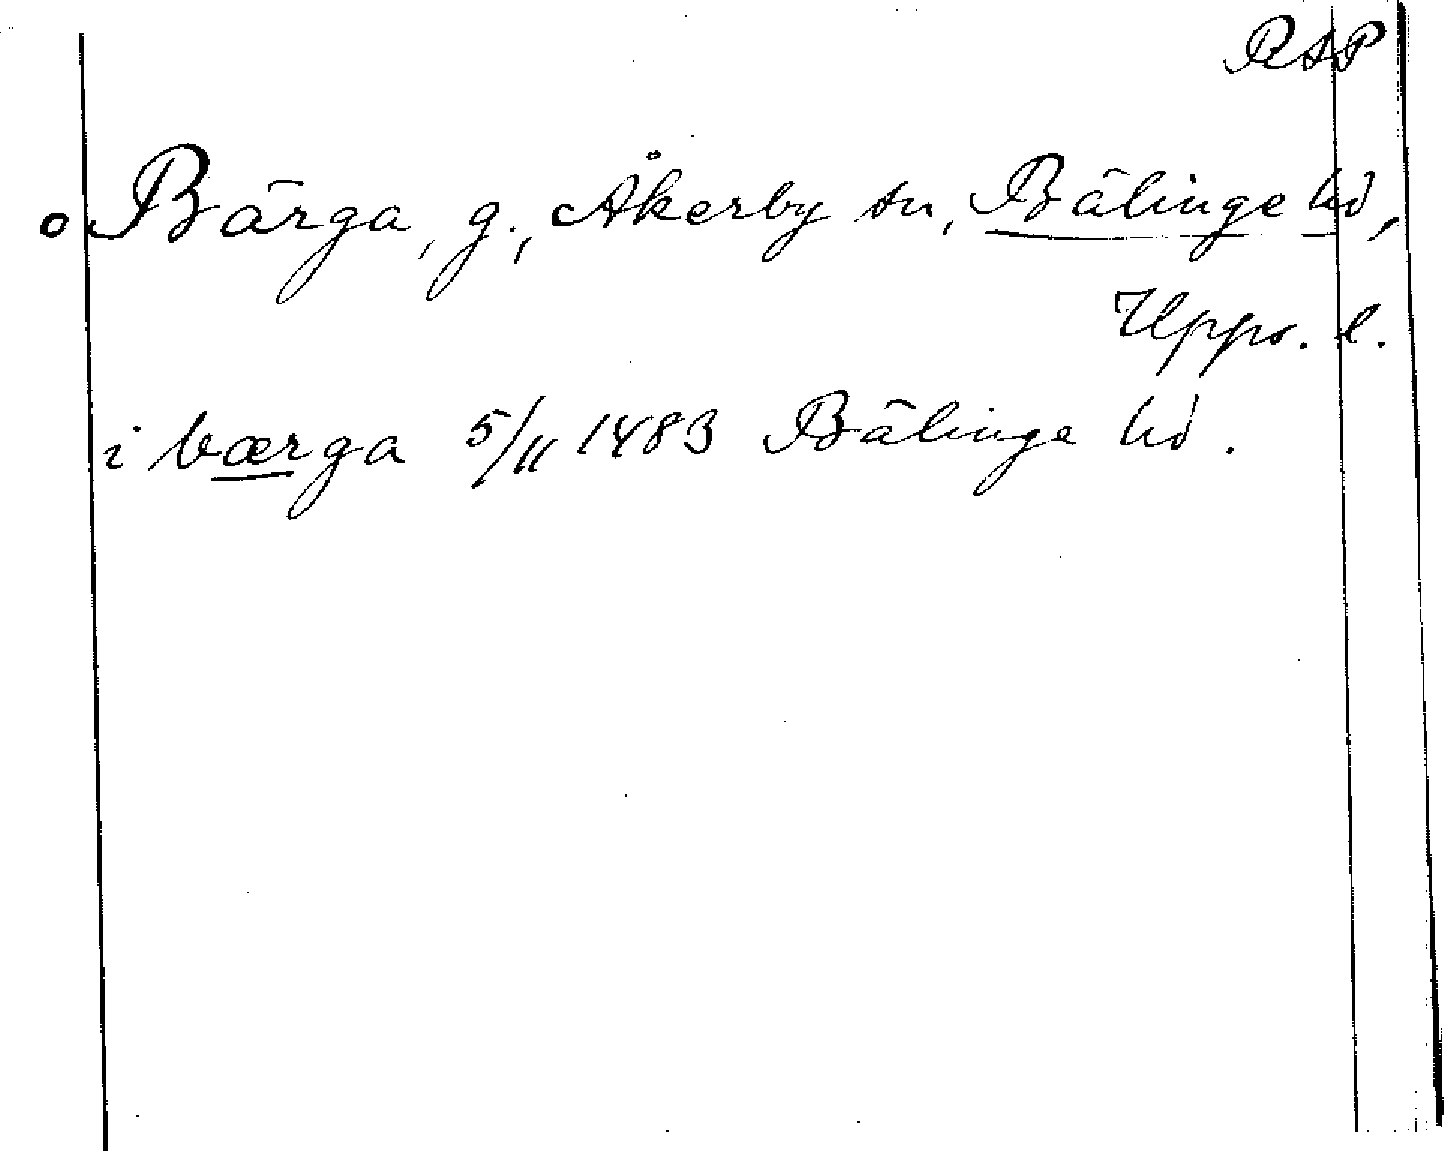 RAP
Bärga, g., Åkerby sn, Bälinge hd,
Upps. l.
i bærga 5/11 1483 Bälinge hd.